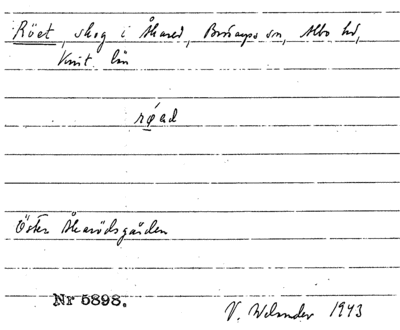 Röet, skog i Åkared, Burseryds sn, Albo hd,
Krist. län
røəd
Öster Åkarödsgården
Nr 5898.
V. Welander 1943